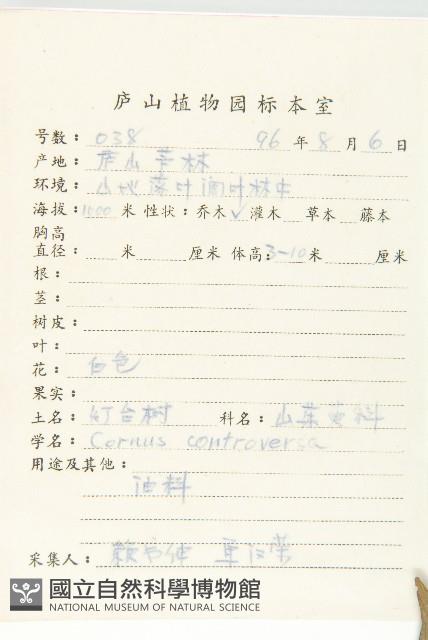 庐山植物园标本室
号数：038 96年8月6日
产地：庐山芦林
环境：山地落叶阔叶林中
海拔：1000米 性状：乔木✓灌木 草本 藤本
胸高
直径： 米 厘米 体高：3-10米 厘米
根：
茎：
树皮：
叶：
花：白色
果实：
土名：灯台树 科名：山茱萸科
学名：Cornus controversa
用途及其他：
油料
采集人：赖书绅
國立自然科學博物館
NATIONAL MUSEUM OF NATURAL SCIENCE